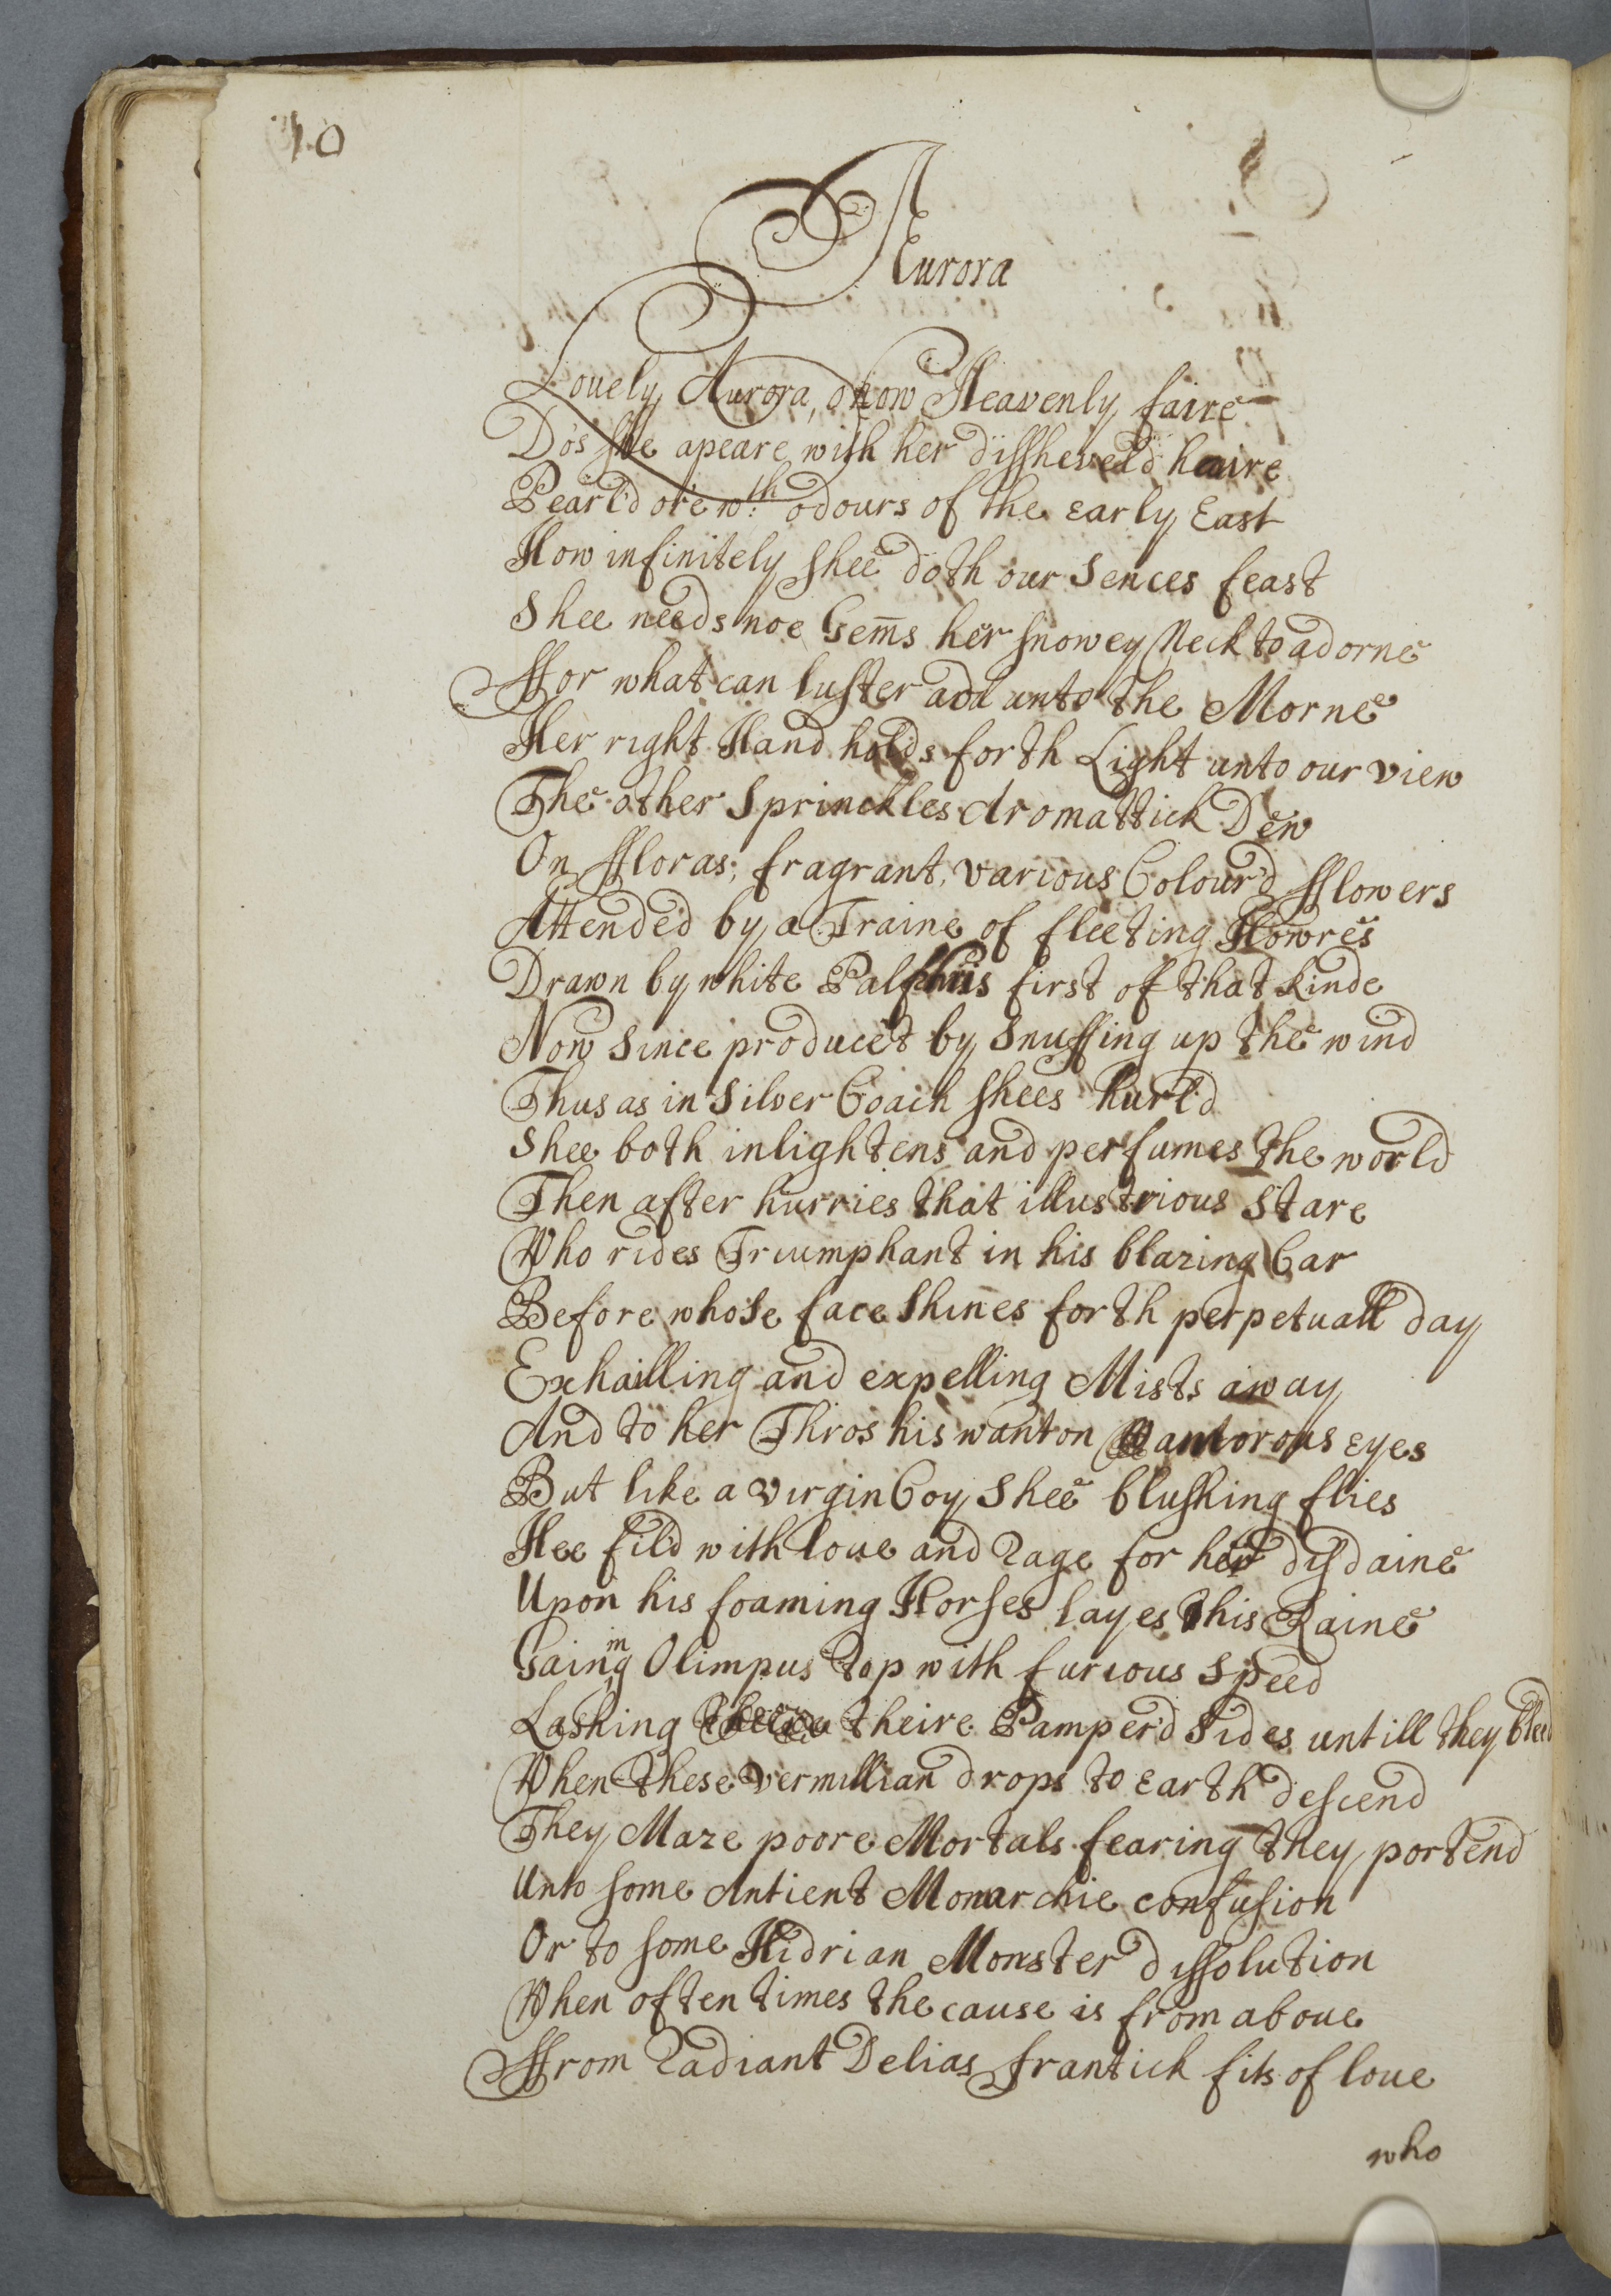 10
Aurora
Louely Aurora, o how Heavenly faire
Do's she apeare with her dissheveld haire
Pearl'd ore wth odours of the early East
How infinitely shee doth our Sences feast
Shee needs noe Gem̄s her snowey Neck to adorne
Ffor what can luster add unto the Morne
Her right Hand holds forth Light unto our view
The other Sprinckles Aromattick Dew
On Ffloras, fragrant, various Colour'd Fflowers
Attended by a Traine of fleeting Howres
Drawn by white first of that kinde
Now Since produc'et by Snuffing up the wind
Thus as in Silver Coach shees hurl'd
Shee both inlightens and perfumes the world
Then after hurries that illustrious Stare
Who rides Triumphant in his blazing Car
Before whose face Shines forth perpetuall day
Exhailling and expelling Mists away
And to her Thros his wanton amorous eyes
But like a virgin Coy Shee blushing flies
Hee fil'd with loue and Rage for her disdaine
Upon his foaming Horses layes this Raine
Gaining Olimpus top with furious Speed
Lashing theire Pamper'd Sides untill they bleed
When these vermillian drops to earth descend
They Maze poore Mortals fearing they portend
Unto some Antient Monarchie confusion
Or to some Hidrian Monster dissolution
When often times the cause is from aboue
Ffrom Radiant Delias frantick fits of loue
who